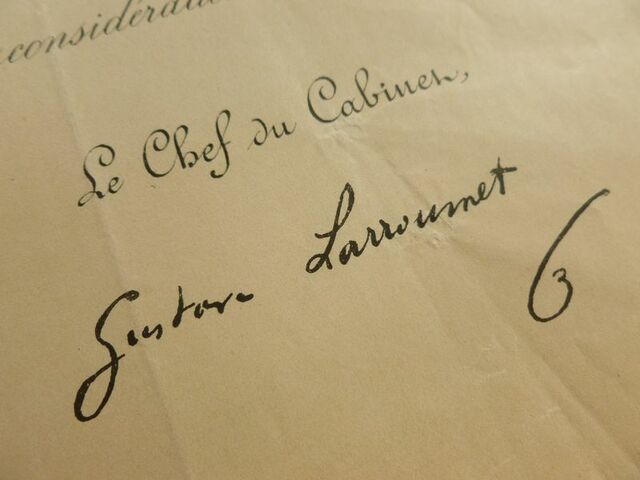 considération
Le Chef du Cabinet,
Gustave Larroumet